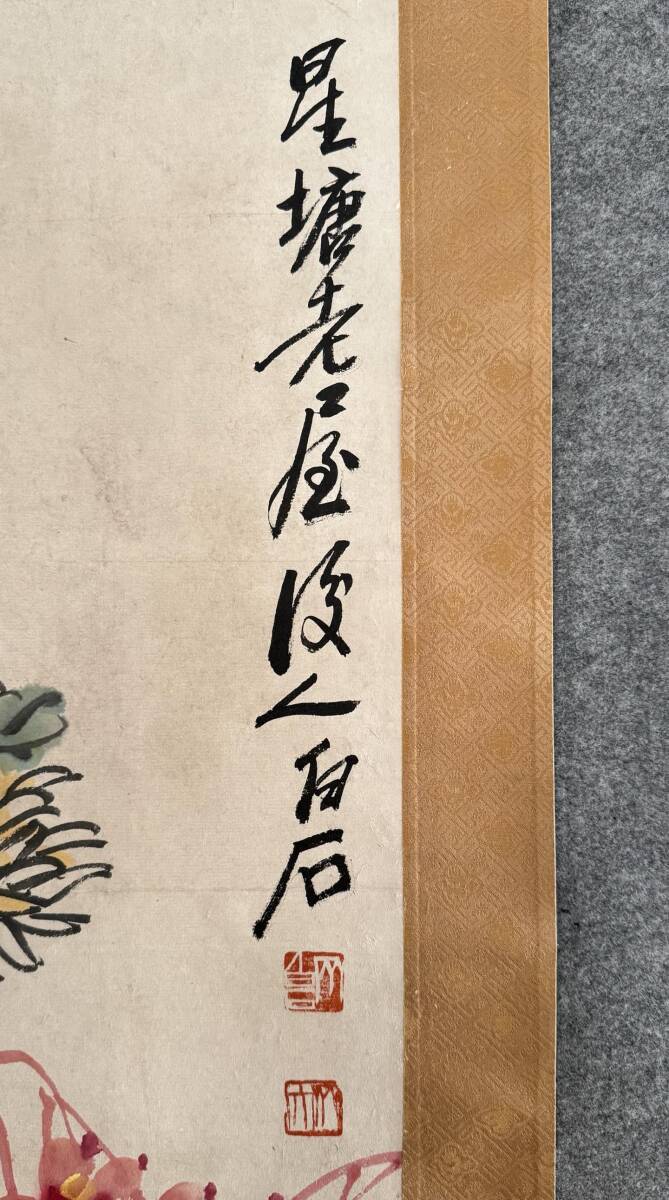 星塘老屋後人白石
木人